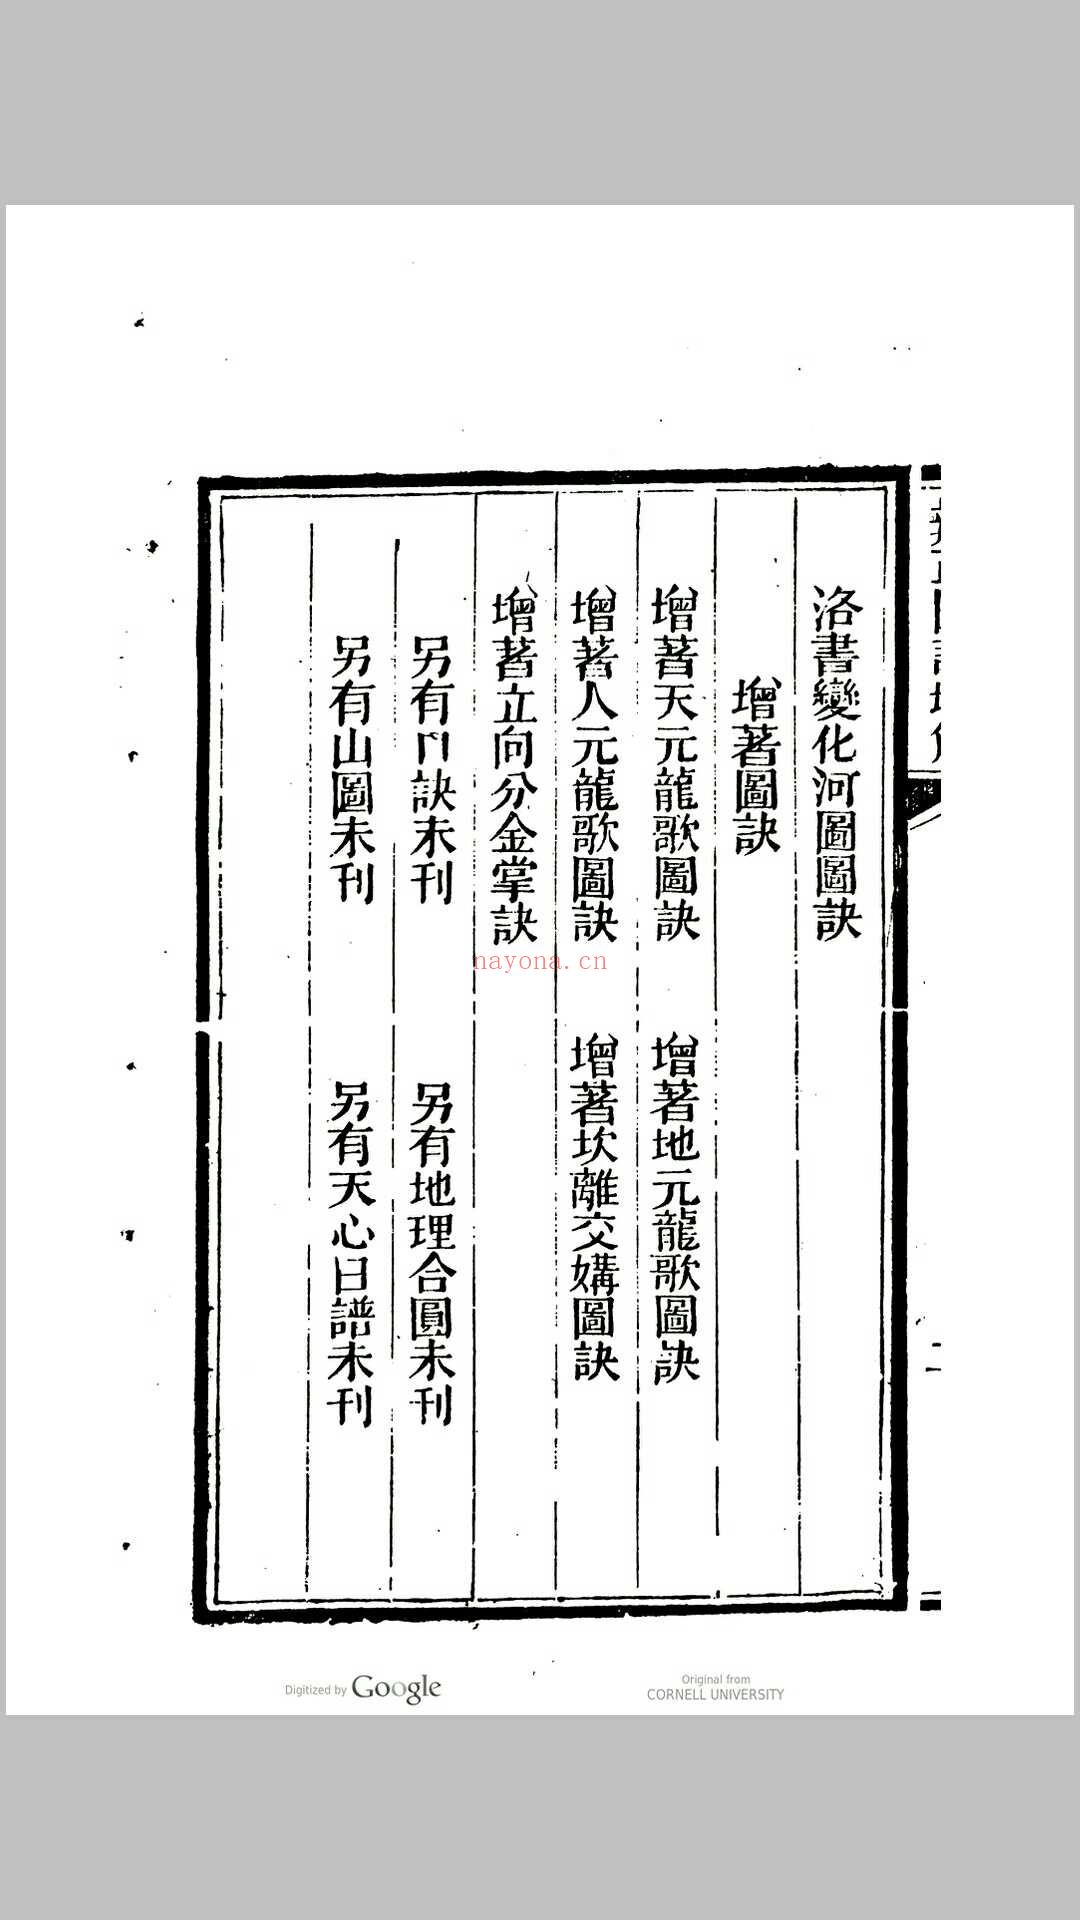 洛書變化河圖圖訣
增著圖訣
增著天元龍歌圖訣 增著地元龍歌圖訣
增著人元龍歌圖訣 增著坎離交媾圖訣
增著立向分金掌訣
另有口訣未刊 另有地理合圓未刊
另有山圖未刊 另有天心日譜未刊
二
nayona.cn
Digitized by Google
Original from
CORNELL UNIVERSITY